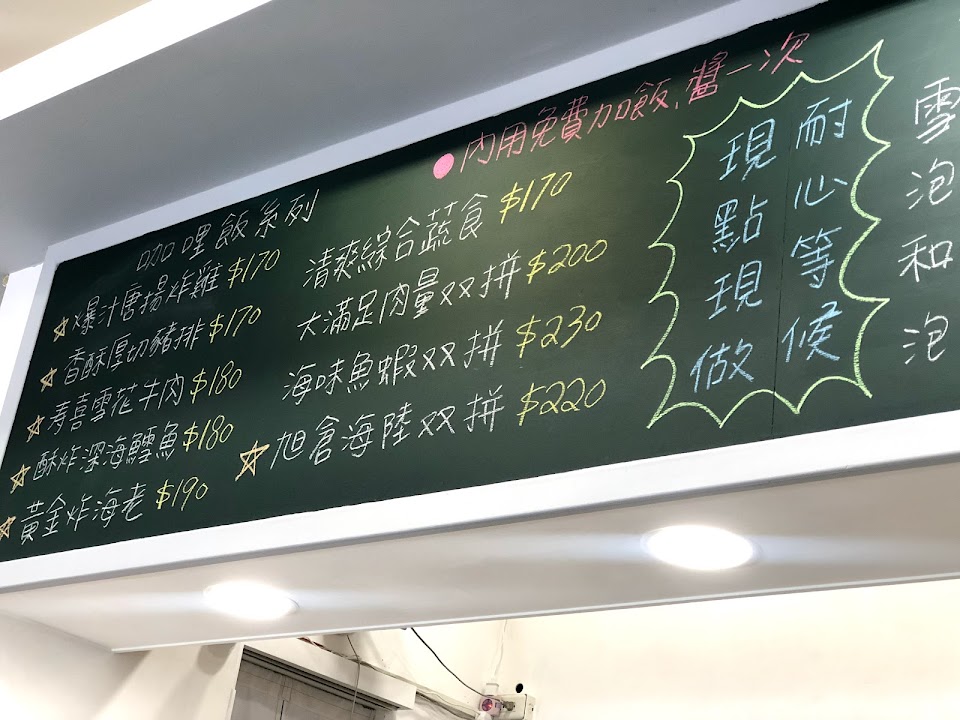 咖哩飯系列
●內用免費加飯、醬一次
☆爆汁唐揚炸雞$170
☆香酥厚切豬排$170
☆壽喜雪花牛肉$180
☆酥炸深海鱈魚$180
☆黃金炸海老$190
清爽綜合蔬食$170
大滿足肉量双拼$200
海味魚蝦双拼$230
☆旭倉海陸双拼$220
耐心等候
現點現做
雪泡
和泡